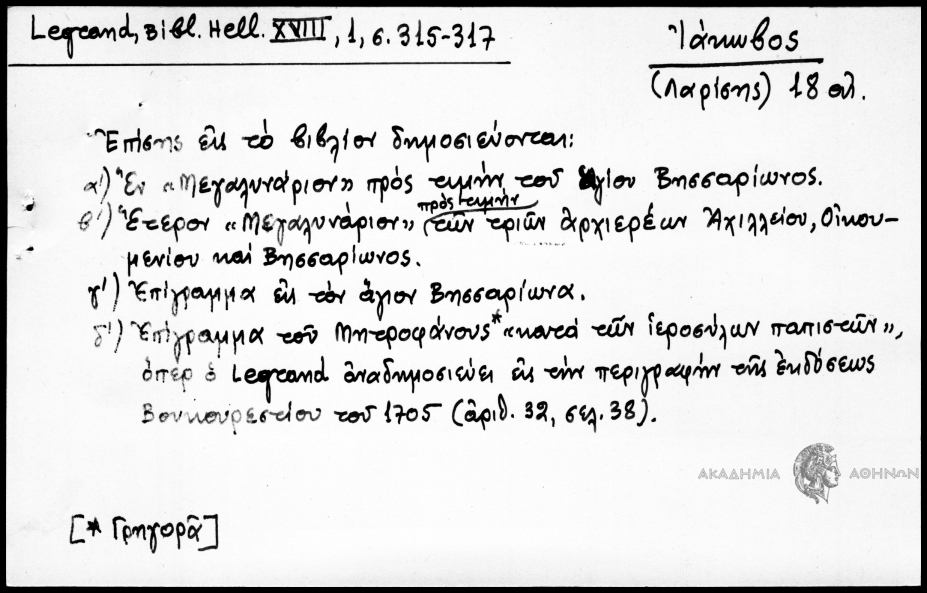 Legrand, Bibl. Hell. XVIII, 1, σ. 315-317
Ἰάκωβος
(Λαρίσης) 18 αἰ.
Ἐπίσης εἰς τὸ βιβλίον δημοσιεύονται:
α΄) Ἓν «Μεγαλυνάριον» πρὸς τιμὴν τοῦ ἁγίου Βησσαρίωνος.
β΄) Ἕτερον «Μεγαλυνάριον» πρὸς τιμὴν τῶν τριῶν ἀρχιερέων Ἀχιλλείου, Οἰκου-
μενίου καὶ Βησσαρίωνος.
γ΄) Ἐπίγραμμα εἰς τὸν ἅγιον Βησσαρίωνα.
δ΄) Ἐπίγραμμα τοῦ Μητροφάνους* «κατὰ τῶν ἱεροσύλων παπιστῶν»,
ὅπερ ὁ Legrand ἀναδημοσιεύει εἰς τὴν περιγραφὴν τῆς ἐκδόσεως
Βουκουρεστίου τοῦ 1705 (ἀριθ. 32, σελ. 38).
ΑΚΑΔΗΜΙΑ ΑΘΗΝΩΝ
[* Γρηγορᾶ]